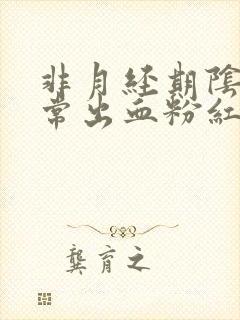 非月经期陰
常出血粉紅
龔育之